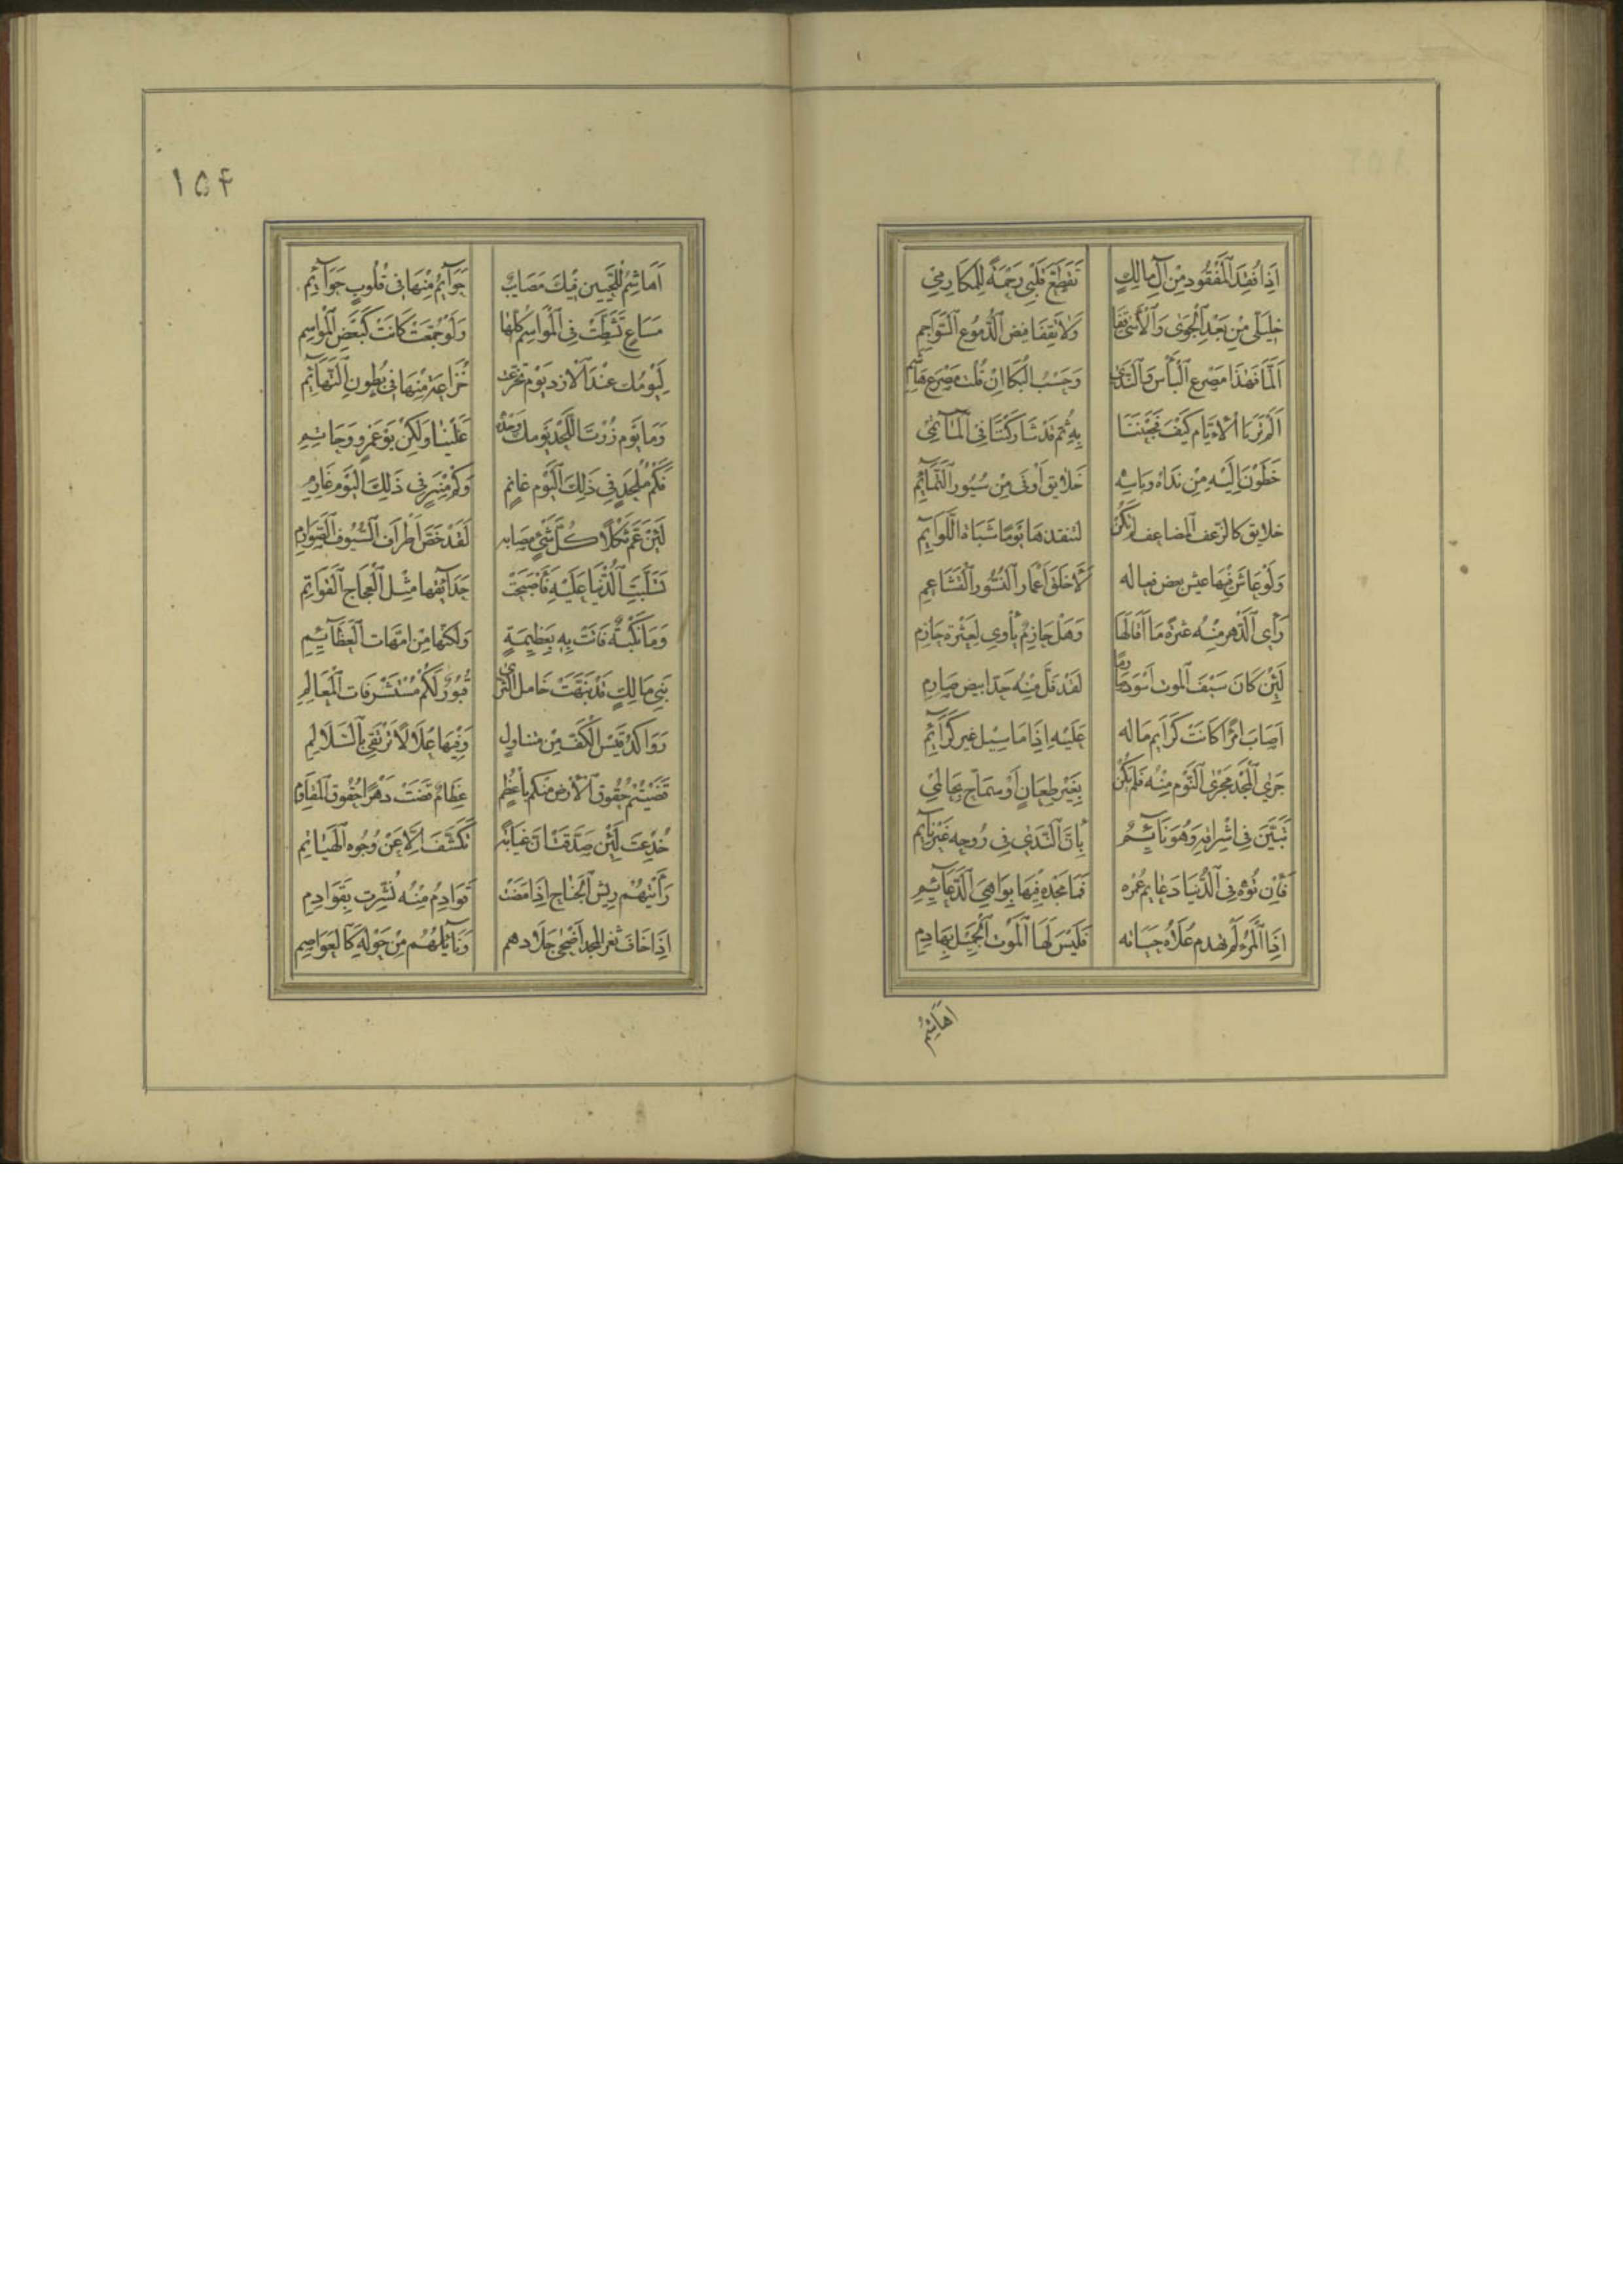 اِذَا فُقِدَ الْمَفْقُود مِنْ آلِ مالِكٍ تَقَطَّعَ قَلْبِي رَحْمَةً لِلمَكَارِمِ
خليلَيّ مِنْ بَعْدِ الْجَوىٰ وَالْأَسىٰ قِفَا وَلا تَقِفَا فيض الدُّمُوعِ السَّوَاجِمِ
اَلِمَّا فَهٰذَا مَصْرع الْبَأْس وَالنَّدىٰ وَحَسْبُ الْبُكَا اِنْ قُلْت مَصْرَع هَاشِمِ
اَلَمْ تَرَيَا الْأَيَّام كَيْفَ فَجَعْنَنَا بِهِ ثُمَّ قَدْ شَارَكْنَنَا فِي الْمَآتِمِ
خَطَوْنَ اِلَيْهِ مِنْ نَدَاهُ وَبَاسِهِ خَلايق اَوْقىٰ مِنْ سُيُورِ التَّمَآئِمِ
خلايق كالزغف المضاعف لم تكن لتنفدها يَوْمًا شَبَاة اللَّوَآئِمِ
وَلَوْ عَاشَ فِيهَا عيش بعض فعاله لَاَخْلَقَ اَعْمَار النُّسُورِ الْقَشَاعِمِ
رَأى الدَّهْر مِنْهُ عَثْرَةً مَا اَقَالَهَا وَهَلْ حَازِمٌ يَأْوِي لِعَثْرَةِ حَازِمِ
لَئِنْ كَانَ سَيْف الموت اَسْوَد صَارِمًا لَقَدْ فَلَّ مِنْهُ حَدّ ابيض صَارِمِ
اَصَابَ امْرَأً كَانَتْ كَرَايم مَاله عَلَيْهِ اِذَا مَا سيل غير كَرَآئِمِ
جَرَى الْمَجْدُ مَجْرَى النَّوْمِ مِنْهُ فَلَمْ يَكُنْ بِغَيْرِ طِعَانٍ اَوْ سَمَاحٍ بِحَالِمِ
تَبَيَّنَ فِي اِشْرَاقِهِ وَهُوَ نَآئِمٌ بِاَنَّ النَّدَى فِي رُوحِهِ غَيْرُ نَآئِمِ
فَاِنْ تُوهَ فِي الدُّنْيَا دَعَايم عُمْره فَمَا مَجْدُهُ فِيهَا بِوَاهِي الدَّعَآئِمِ
اِذَا الْمَرْءُ لَمْ تهدم عُلَاهُ حَيَاته فَلَيْسَ لَهَا الْمَوْت الْجَلِيل بِهَادِمِ
اَهاشِمُ
١٥٤
اَهَاشِمُ لِلْحَيَّيْنِ فِيكَ مَصَايِبٌ جَوَآثِمُ مِنْهَا فِي قُلُوبٍ جَوَآثِمِ
مَسَاعٍ تَشَظَّتْ فِي الْمَوَاسِمِ كُلّهَا وَلَوْ جُمِعَتْ كَانَتْ كَبَعْضِ الْمَوَاسِمِ
لِيَوْمُكَ عِنْدَ الْاَزْدِ يَوْم تَخَزَّعَتْ خُزَاعَة مِنْهَا فِي بُطُونِ التَّهَآئِمِ
وَمَا يَوْم زُرْتَ اللَّحْدَ يَوْمك وَحْدَهُ عَلَيْنَا وَلٰكِنْ يَوْم عَمْرٍو وَحَاتِمِ
فَكَمْ مُلْحِدٍ فِي ذٰلِكَ الْيَوْمِ غَانِمٍ وَكَمْ مِنْبَرٍ فِي ذٰلِكَ الْيَوْمِ غَارِمِ
لَئِنْ عَمَّ ثُكْلًا كُلَّ شَيْءٍ مصَابه لَقَدْ خَصَّ اَطْرَاف السُّيُوفِ الصَّوَارِمِ
تَسَلَّبَتِ الدُّنْيَا عَلَيْهِ فَاَصْبَحَتْ حَدَآئِقهَا مِثْل الْعجَاجِ الْقَوَاتِمِ
وَمَا نَكْبَةٌ فَاتَتْ بِهِ بِعَظِيمَةٍ وَلٰكِنَّهَا مِنْ اُمَّهَات الْعَظَآئِمِ
بَنِي مَالِكٍ قَدْ نَبَّهَتْ خَامِل الثَّرٰى قُبُورٌ لَكُمْ مُسْتَشْرِفَات الْمَعَالِمِ
رَوَاكِدُ قيس الكَفِّ مِنْ متناولٍ وَفِيهَا عُلًا لَا تُرْتَقى بِالسَّلَالِمِ
قَضَيْتُمْ حُقُوق الْأَرْضِ مِنْكُم بِاَعْظُمٍ عِظَامٍ قَضَتْ دَهْرًا حُقُوق الْمَقَاوِمِ
خُدِعْتَ لَئِنْ صَدَّقْت اَنّ غيابَةً تَكَشَّفُ اِلَّا عَنْ وُجُوهِ الْهَيَاثِمِ
رَأَيْتُهُمْ رِيش الْجَنَاحِ اِذَا مَضَتْ قَوَادِمُ مِنْهُ بُشِّرَت بِقَوَادِمِ
اِذَا خَافَ ثغر المجد اَضْحى جلادهم وَنَآئِلُهُمْ مِنْ حَوْلِهِ كَالْعَوَاصِمِ